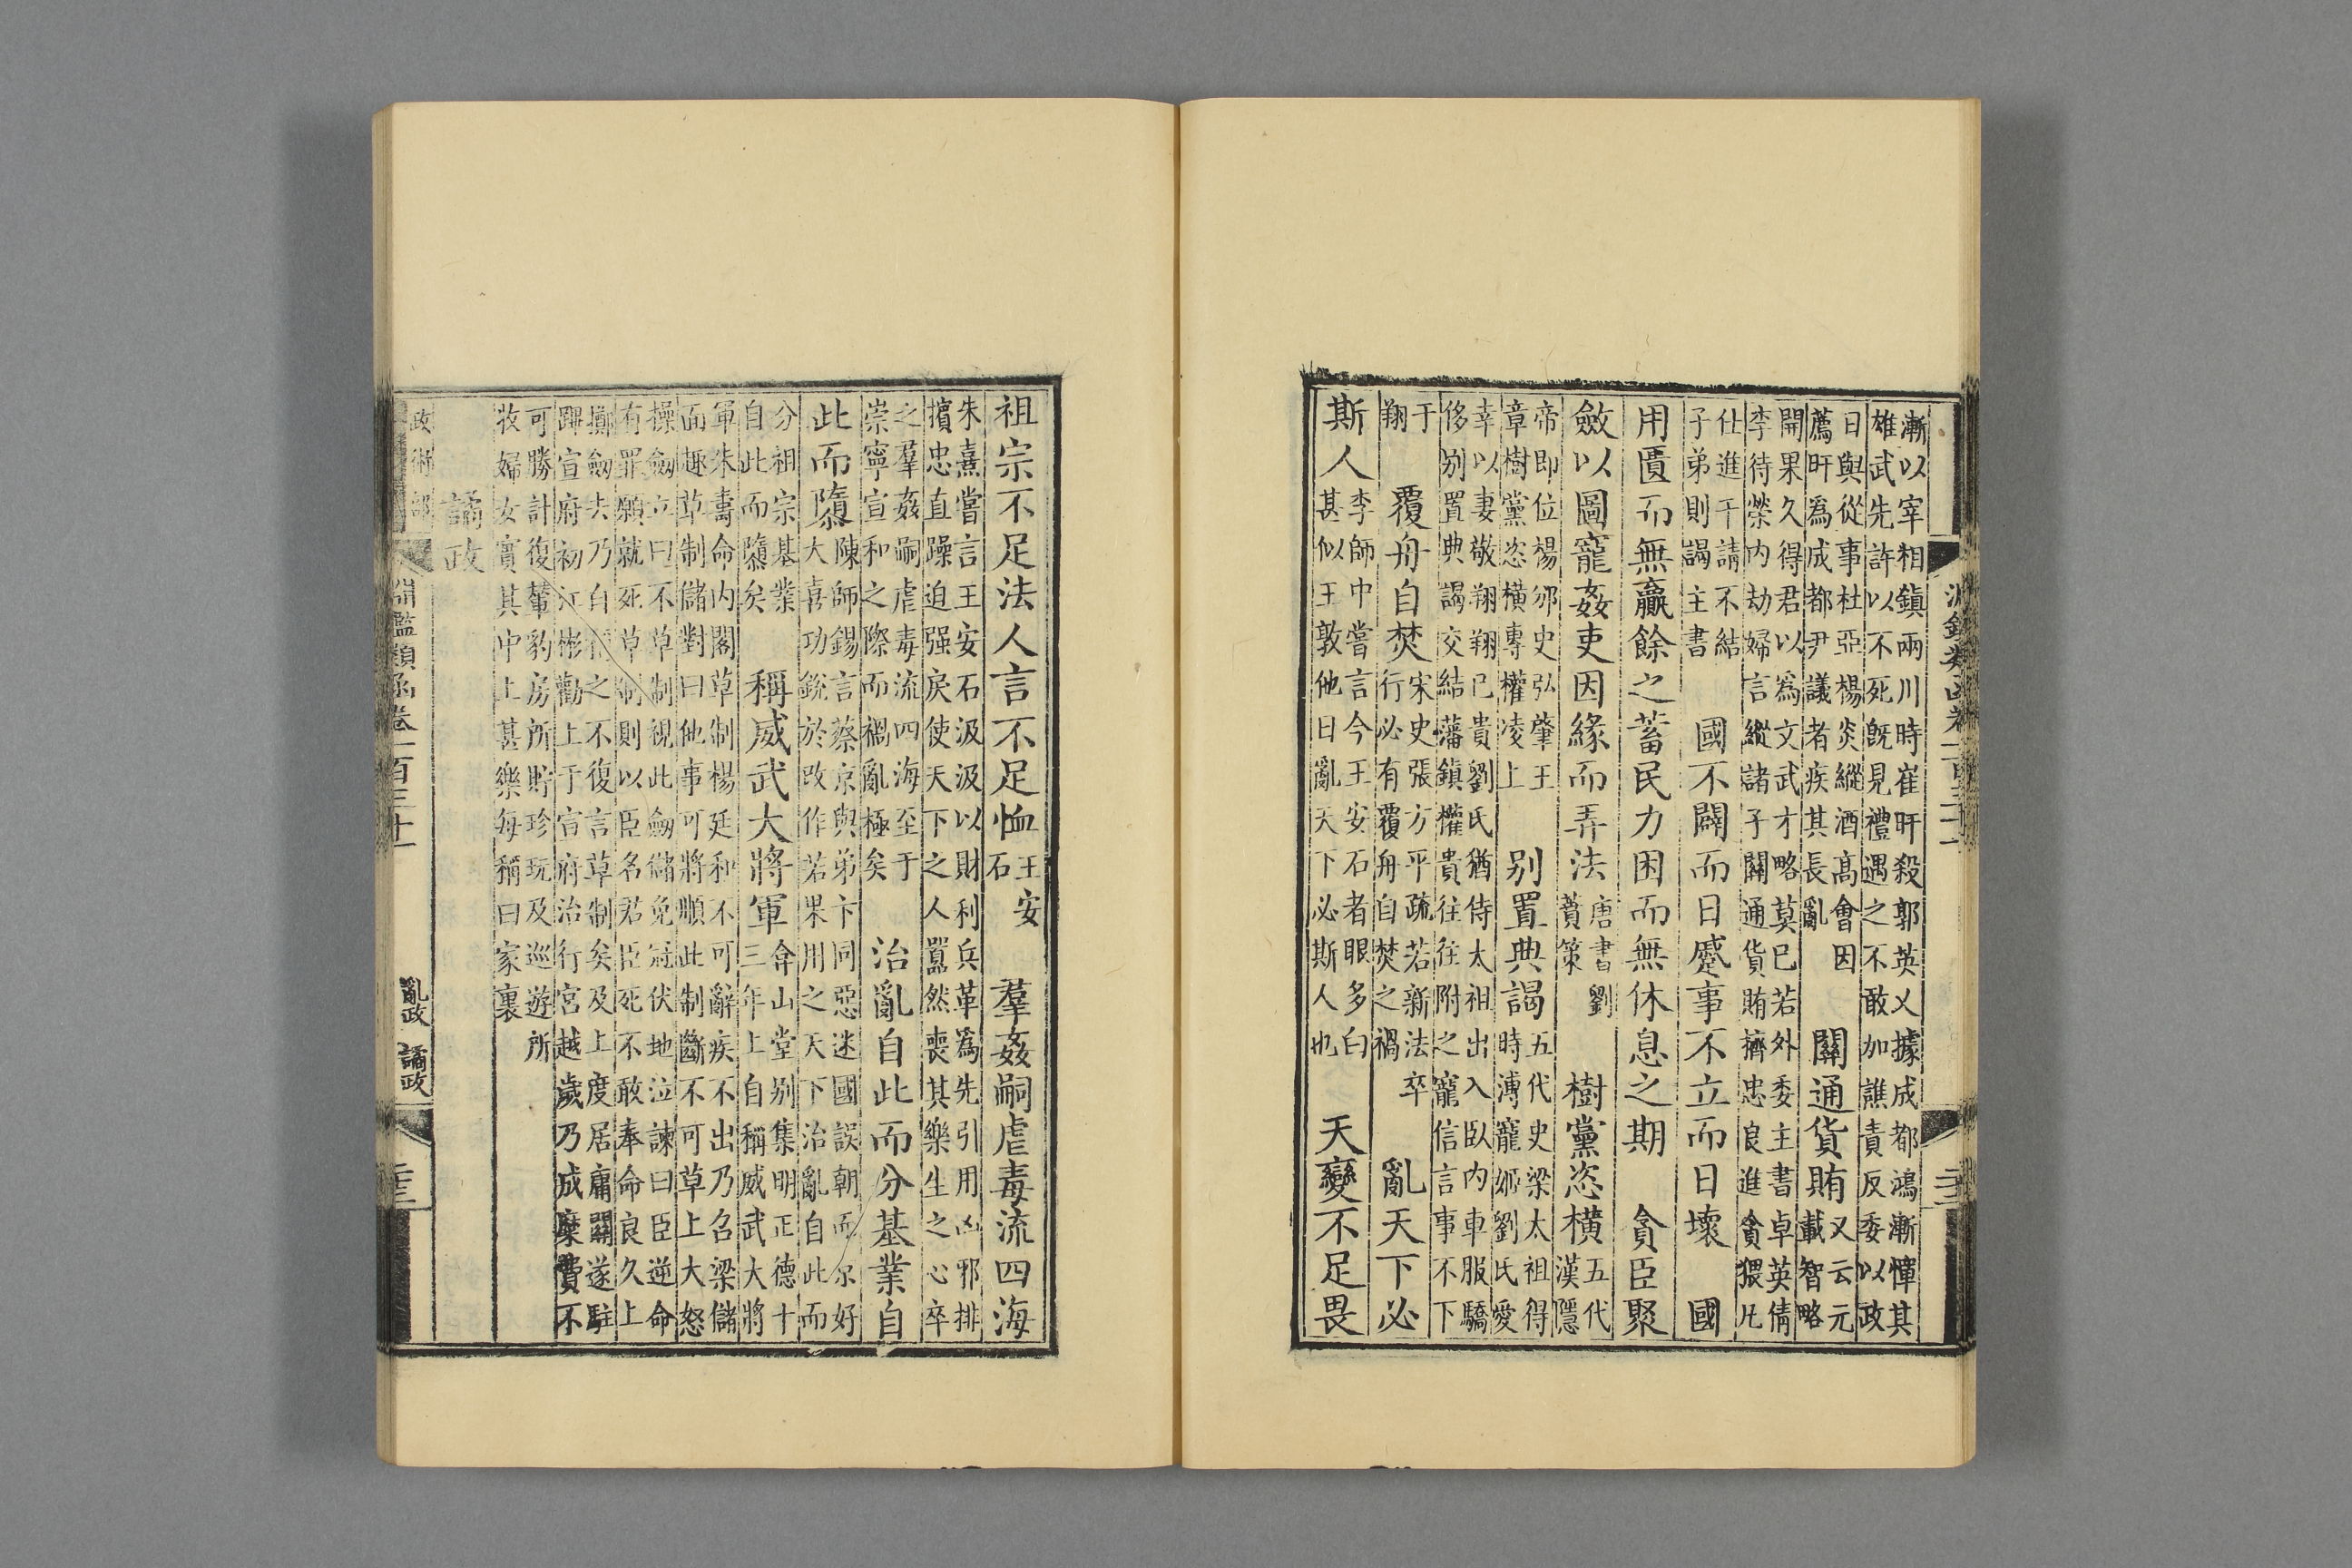 漸以宰相鎮兩川時崔旰殺郭英乂據成都鴻漸憚其
雄武先許以不死旣見禮遇之不敢加譙責反委以政
日與從事杜亞楊炎縱酒高會因
薦旰爲成都尹議者疾其長亂
關通貨賄
又云元
載智略
開果久得君以爲文武才略莫己若外委主書卓英倩
李待榮內劫婦言縱諸子關通貨賄擠忠良進貪猥凡
仕進干請不結
子弟則謁主書
國不闢而日蹙事不立而日壞 國
用匱而無羸餘之蓄民力困而無休息之期 貪臣聚
斂以圖寵姦吏因緣而弄法
唐書劉
蕡策
樹黨恣橫
五代
漢隱
帝即位楊邠史弘肇王
章樹黨恣橫專權凌上
别置典謁
五代史梁太祖得
時溥寵姬劉氏愛
幸以妻敬翔翔已貴劉氏猶侍太祖出入臥內車服驕
侈别置典謁交結藩鎮權貴往往附之寵信言事不下
于
翔
覆舟自焚
宋史張方平疏若新法卒
行必有覆舟自焚之禍
亂天下必
斯人
李師中嘗言今王安石者眼多白
甚似王敦他日亂天下必斯人也
天變不足畏
祖宗不足法人言不足恤
王安
石
羣姦嗣虐毒流四海
朱熹嘗言王安石汲汲以財利兵革爲先引用凶邪排
擯忠直躁迫强戾使天下之人囂然喪其樂生之心卒
之羣姦嗣虐毒流四海至于
崇寧宣和之際而禍亂極矣
治亂自此而分基業自
此而隳
陳師錫言蔡京與弟卞同惡迷國誤朝而京好
大喜功銳於改作若果用之天下治亂自此而
分祖宗基業
自此而隳矣
稱威武大將軍
弇山堂别集明正德十
三年上自稱威武大將
軍朱壽命內閣草制楊廷和不可辭疾不出乃召梁儲
面趣草制儲對曰他事可將順此制斷不可草上大怒
操劔立曰不草制視此劔儲免冠伏地泣諫曰臣逆命
有罪願就死草制則以臣名君臣死不敢奉命良久上
擲劔去乃自稱之不復言草制矣及上度居庸關遂駐
蹕宣府初江彬勸上于宣府治行宮越歲乃成糜費不
可勝計復輦豹房所貯珍玩及巡遊所
收婦女實其中上甚樂每稱曰家裏
譎政
政術部
淵鑑類函卷一百三十一
亂政 譎政